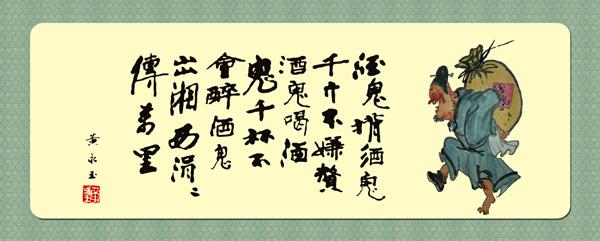 酒鬼揹酒鬼
千斤不嫌贅
酒鬼喝酒
鬼千杯不
會醉酒鬼
出湘西涓〻
傳萬里
黃永玉